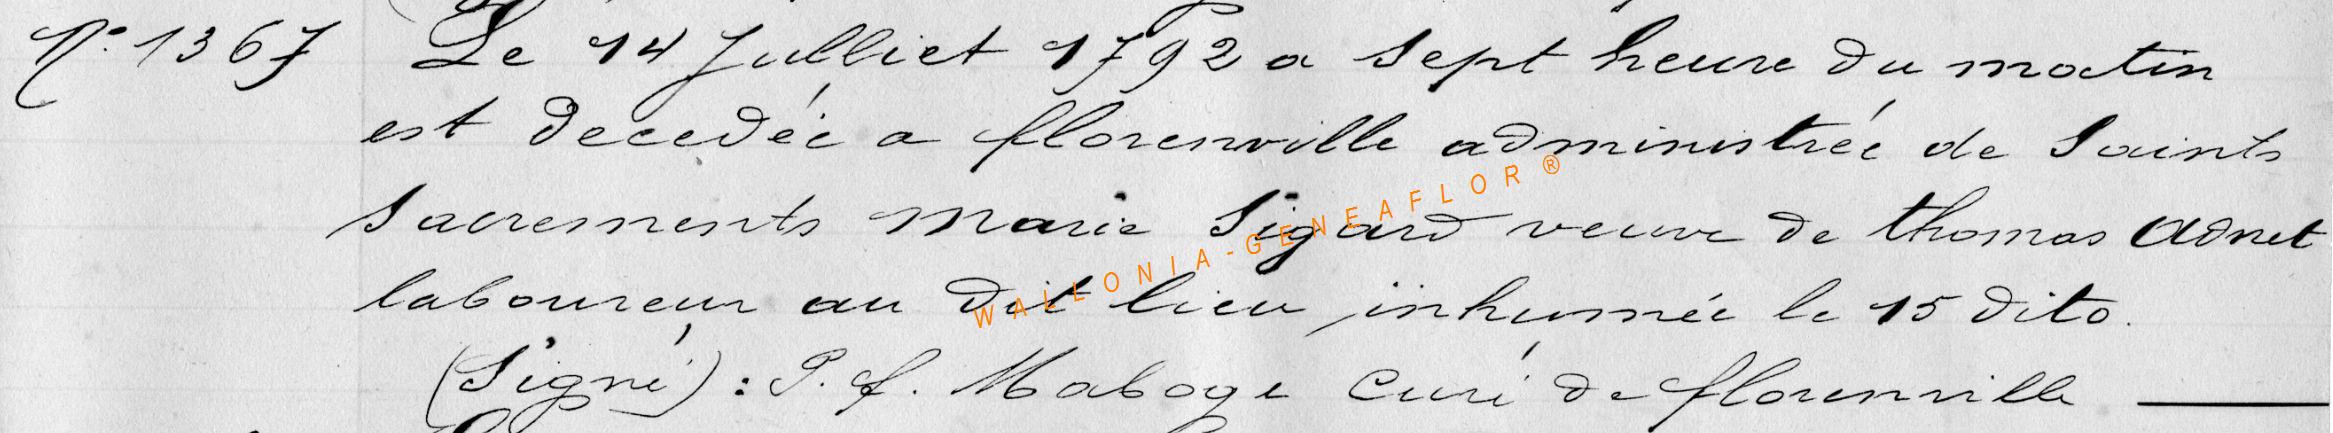 N° 1367 Le 14 Julliet 1792 a sept heure du matin
est decedée a florenville administrée de Saints
Sacrements marie Sigard veuve de thomas Adnet
laboureur au dit lieu, inhumée le 15 dito.
(Signé) : P. f. Maboge Curé de florenville
WALLONIA-GENEAFLOR®